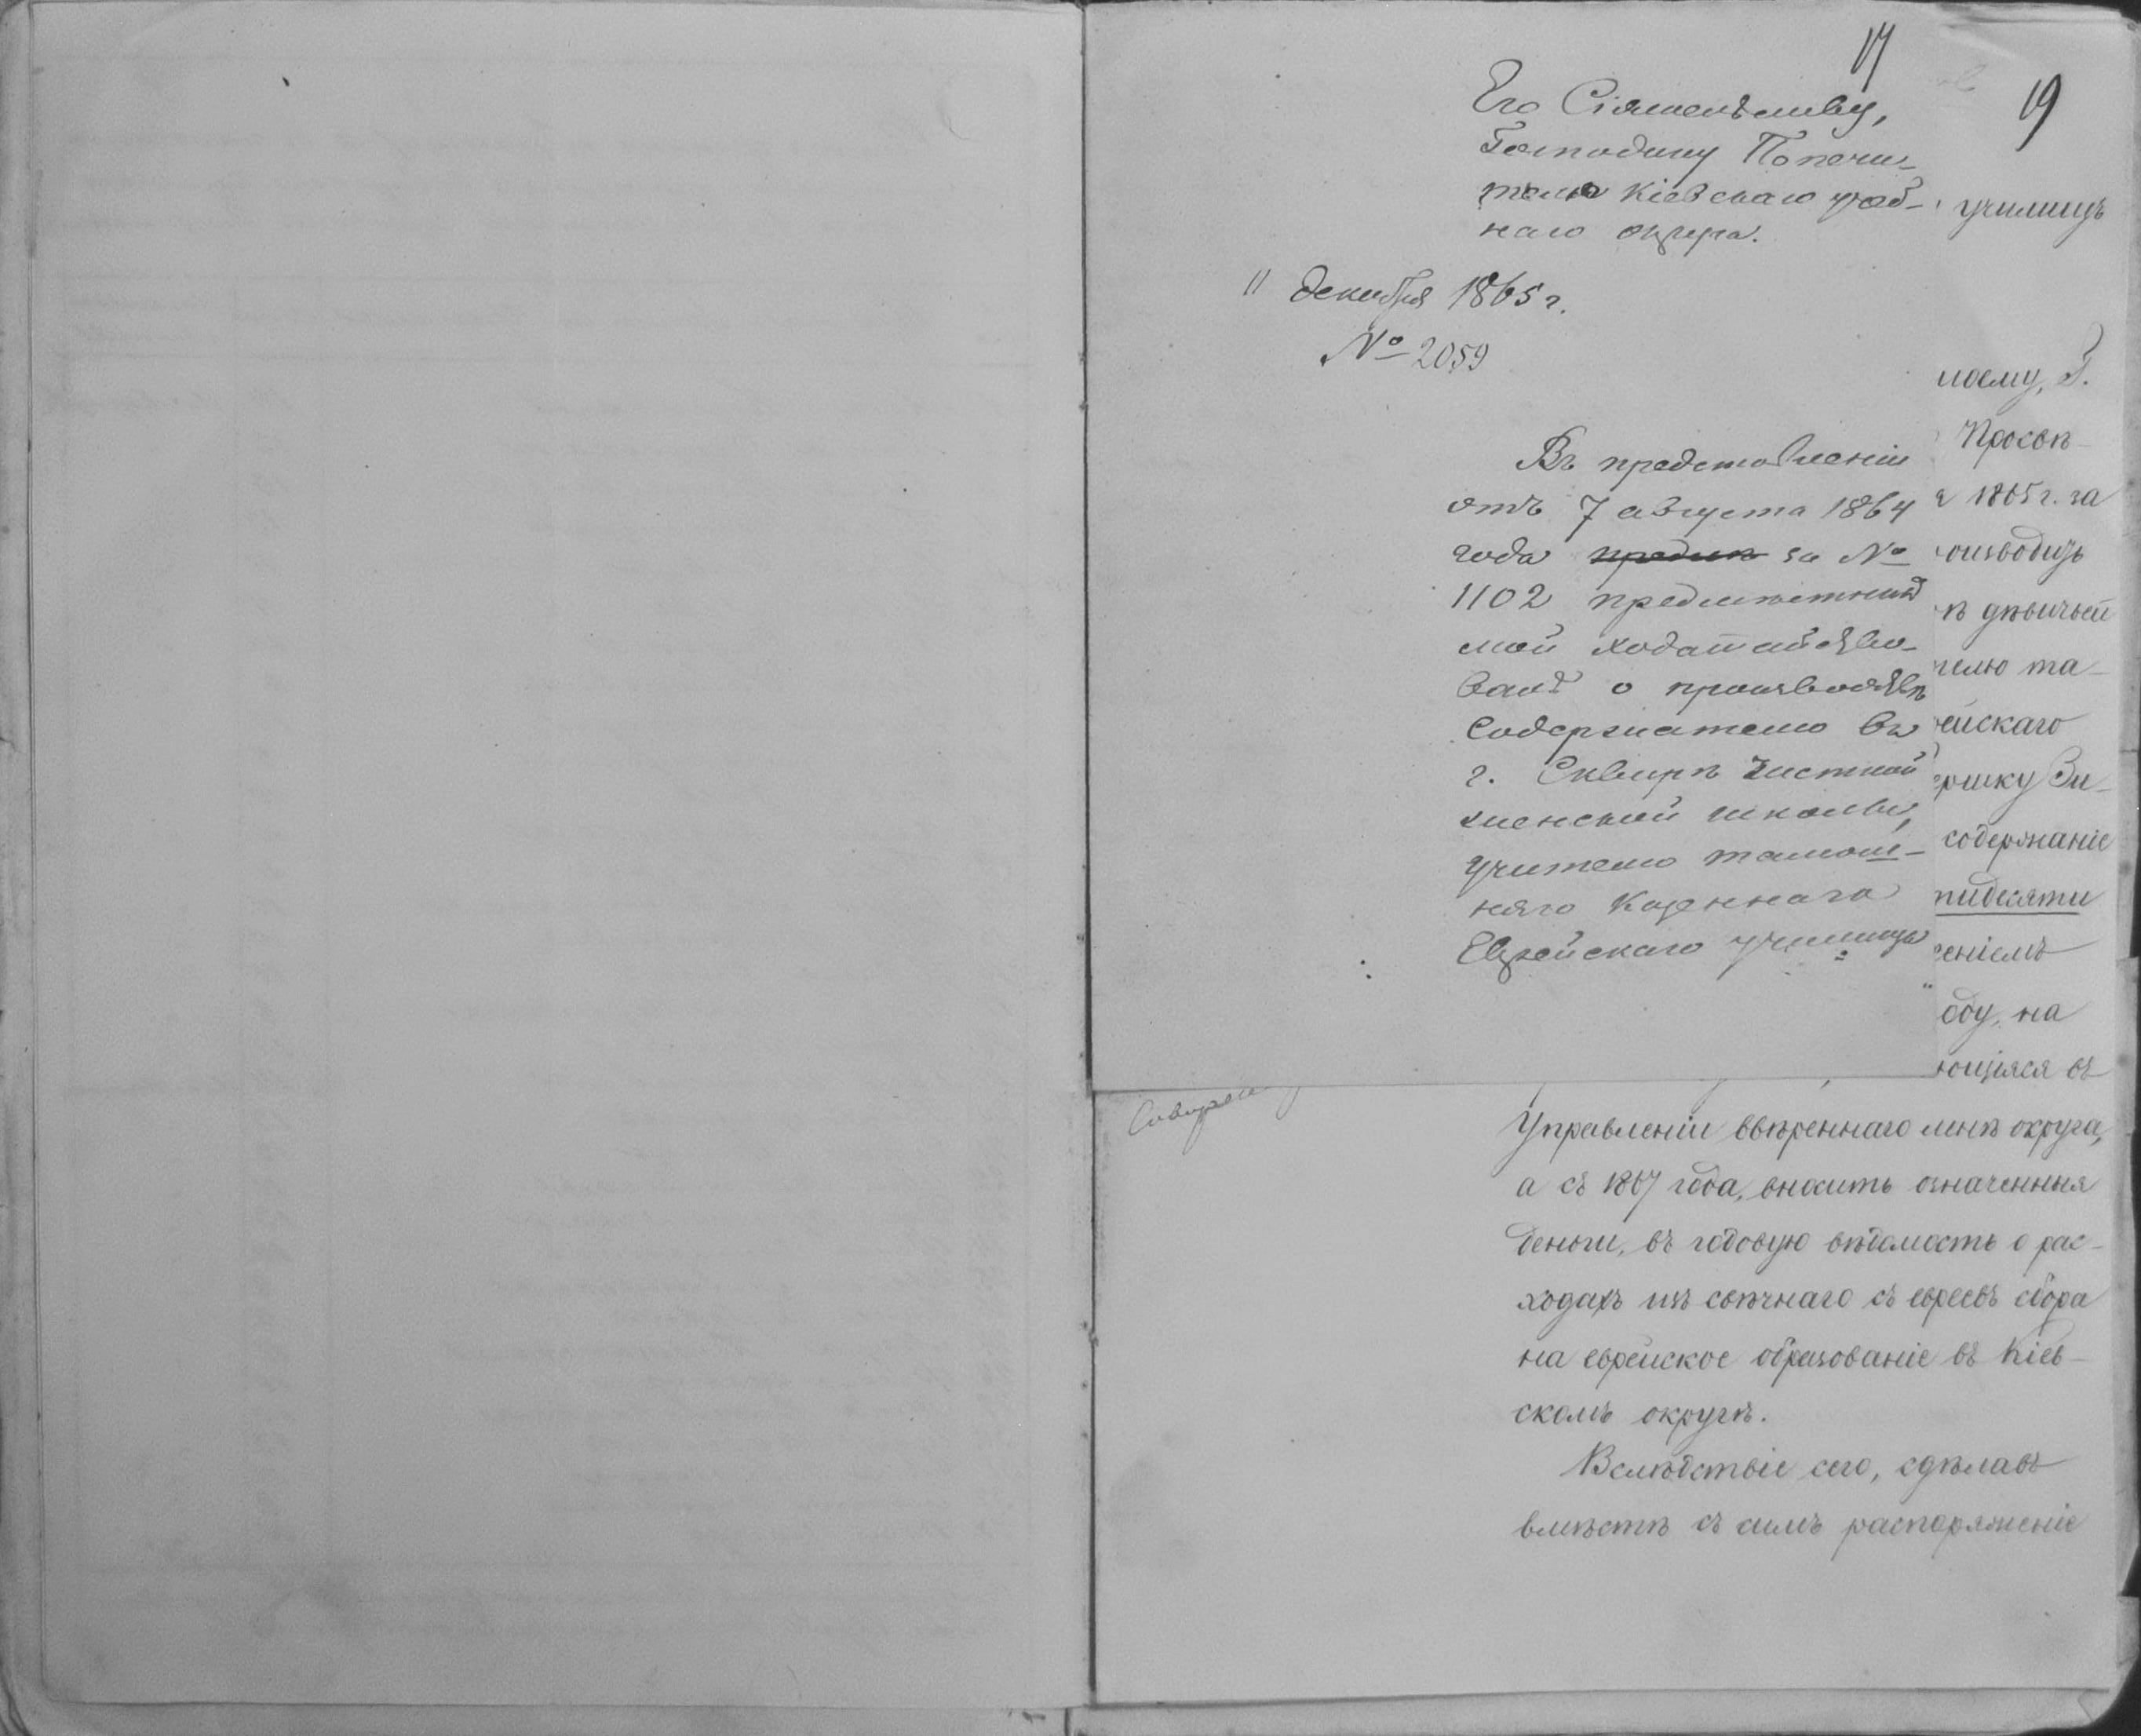 17
19
Его Сіятельству,
Господину Попечи-
телю Кіевскаго учеб-
наго округа.
11 декабря 1865 г.
№ 2059
Въ представленіи
отъ 7 августа 1864
года за №
1102 предмѣстникъ
мой ходатайство-
валъ о производствѣ
содержателю въ
г. Сквирѣ частной
женской школы,
учителю тамош-
няго Казеннаго
Еврейскаго училища
училищъ
моему, Г.
Просвѣ-
1865 г. за
оизводить
дѣвичьей
телю та-
ейскаго
ершку Зи-
содержаніе
тидесяти
еніемъ
оду, на
ющіяся въ
Управленіи ввѣреннаго мнѣ округа,
а съ 1867 года, вносить означенныя
деньги, въ годовую вѣдомость о рас-
ходахъ изъ свѣчнаго съ евреевъ сбора
на еврейское образованіе въ Кіев-
скомъ округѣ.
Вслѣдствіе сего, сдѣлавъ
вмѣстѣ съ симъ распоряженіе